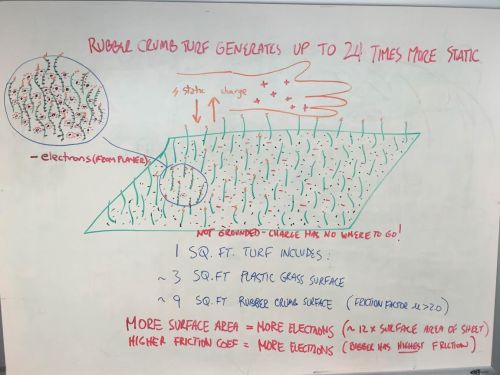 RUBBER CRUMB TURF GENERATES UP TO 24 TIMES MORE STATIC
static charge
- electrons (FROM PLAYER)
NOT GROUNDED - CHARGE HAS NO WHERE TO GO!
1 SQ.FT. TURF INCLUDES:
~ 3 SQ.FT PLASTIC GRASS SURFACE
~ 9 SQ.FT RUBBER CRUMB SURFACE (FRICTION FACTOR μ > 2.0)
MORE SURFACE AREA = MORE ELECTIONS (~ 12 x SURFACE AREA OF SHEET)
HIGHER FRICTION COEF = MORE ELECTIONS (RUBBER HAS HIGHEST FRICTION)